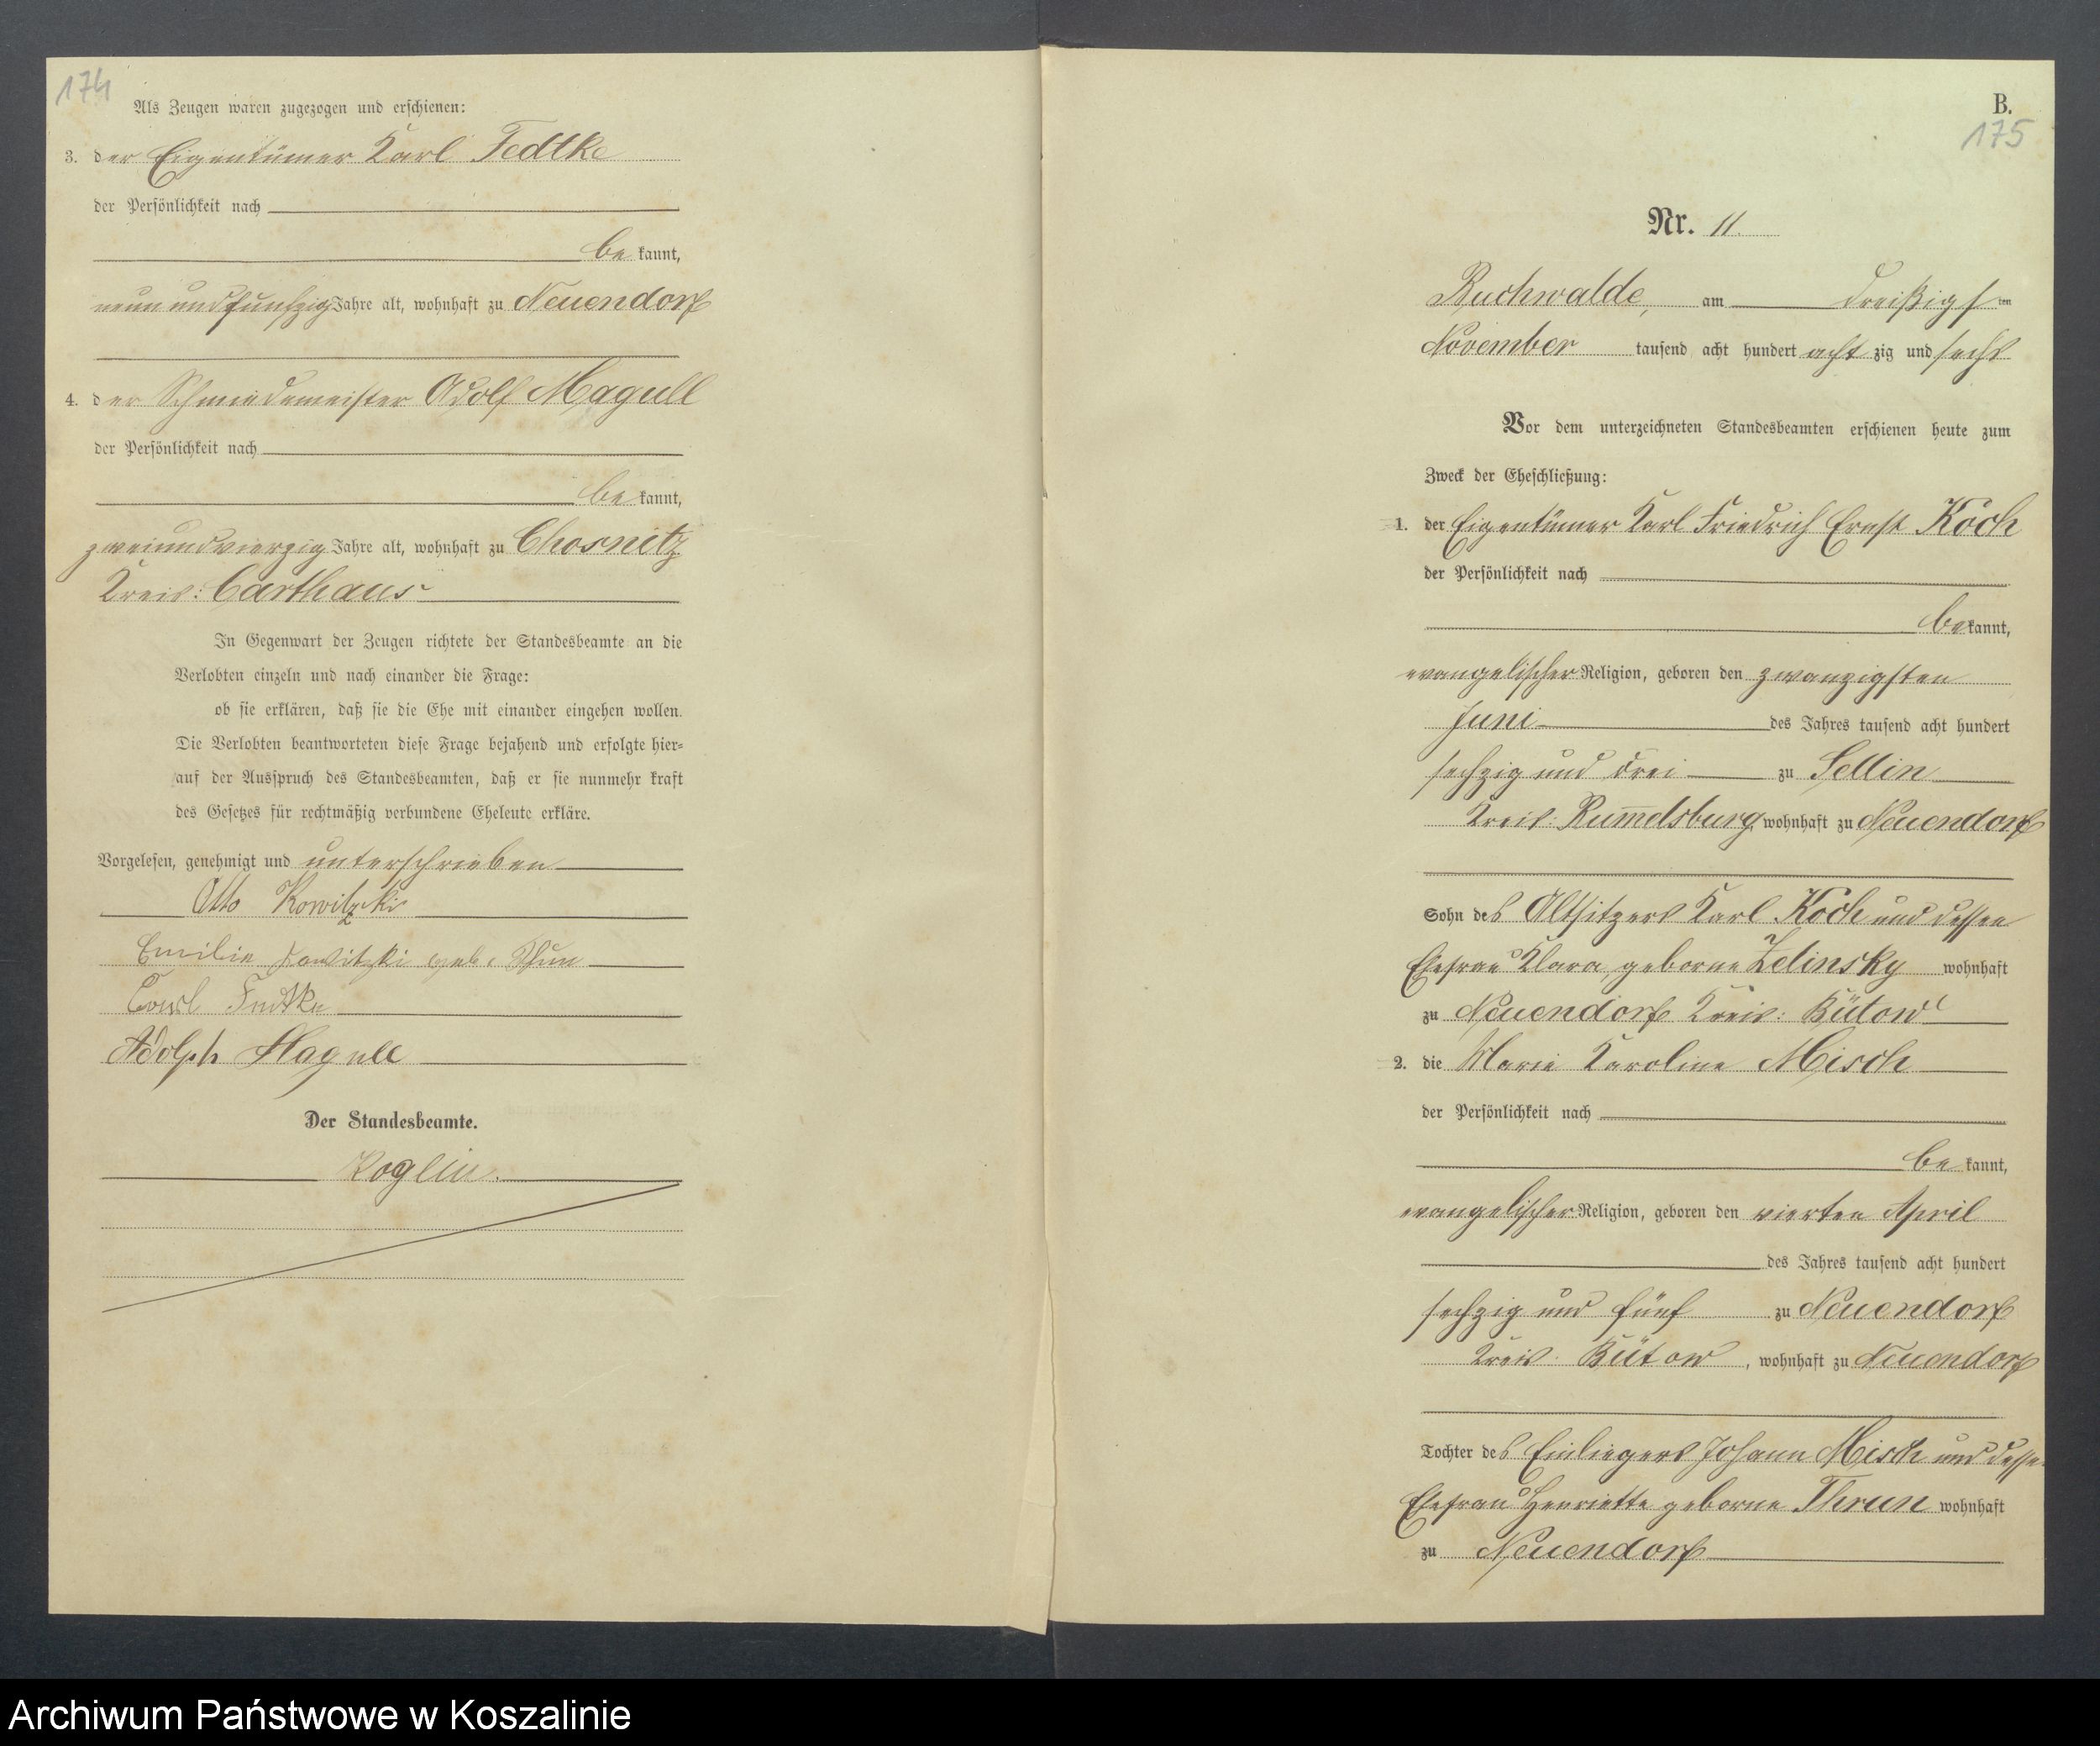 174
Als Zeugen waren zugezogen und erschienen:
3. der Eigentümer Karl Fedtke
der Persönlichkeit nach
be kannt,
neun und funfzig Jahre alt, wohnhaft zu Neuendorf
4. der Schmiedemeister Adolf Magull
der Persönlichkeit nach
be kannt,
zweiundvierzig Jahre alt, wohnhaft zu Chosnitz
Kreis: Carthaus
In Gegenwart der Zeugen richtete der Standesbeamte an die
Verlobten einzeln und nach einander die Frage:
ob sie erklären, daß sie die Ehe mit einander eingehen wollen.
Die Verlobten beantworteten diese Frage bejahend und erfolgte hier-
auf der Ausspruch des Standesbeamten, daß er sie nunmehr kraft
des Gesetzes für rechtmäßig verbundene Eheleute erkläre.
Vorgelesen, genehmigt und unterschrieben
Otto Kowitzki
Emilie geb.
Carl Fedtke
Adolph Magull
Der Standesbeamte.
Roglin.
B.
175
Nr. 11.
Buchwalde, am dreißigsten
November tausend acht hundert acht zig und sechs
Vor dem unterzeichneten Standesbeamten erschienen heute zum
Zweck der Eheschließung:
1. der Eigentümer Karl Friedrich Ernst Koch
der Persönlichkeit nach
be kannt,
evangelischer Religion, geboren den zwanzigsten
Juni des Jahres tausend acht hundert
sechzig und drei zu Sellin
Kreis: Rum̅elsburg, wohnhaft zu Neuendorf
Sohn des Altsitzers Karl Koch und dessen
Ehefrau Klara, geborne Zelinsky wohnhaft
zu Neuendorf Kreis: Bütow
2. die Marie Karoline Misch
der Persönlichkeit nach
be kannt,
evangelischer Religion, geboren den vierten April
des Jahres tausend acht hundert
sechzig und fünf zu Neuendorf
Kreis: Bütow, wohnhaft zu Neuendorf
Tochter des Einliegers Johann Misch und dessen
Ehefrau Henriette geborne Thrun wohnhaft
zu Neuendorf
Archiwum Państwowe w Koszalinie